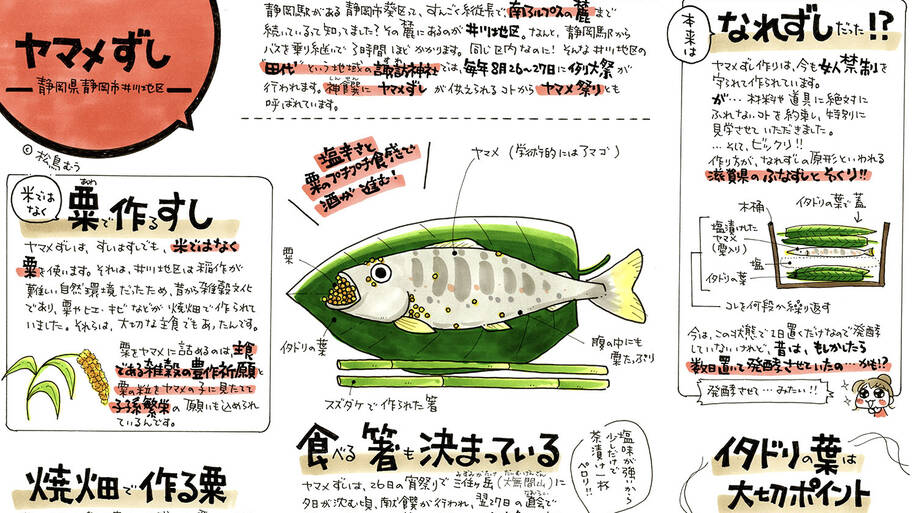 ヤマメずし
静岡県静岡市井川地区
© 松鳥むう
静岡駅がある静岡市葵区って、すんごく縦長で、南アルプスの麓まで
続いているって知ってました？その麓にあるのが井川地区。なんと、静岡駅から
バスを乗り継いで3時間ほどかかります。同じ区内なのに！そんな井川地区の
"田代"という地域の諏訪神社では、毎年8月26〜27日に例大祭が
行われます。神饌にヤマメずしが供えられるコトからヤマメ祭りとも
呼ばれています。
米ではなく
粟で作るすし
あわ
ヤマメずしは、すしはすしでも、米ではなく
粟を使います。それは、井川地区は稲作が
難しい自然環境だったため、昔から雑穀文化
であり、粟やヒエ・キビなどが焼畑で作られて
いました。それらは、大切な主食でもあったんです。
粟をヤマメに詰めるのは、主食
である雑穀の豊作祈願と
粟の粒をヤマメの子に見たてて
子孫繁栄の願いも込められ
ているんです。
焼畑で作る粟
塩辛さと
粟のプチプチ食感で
酒が進む！
ヤマメ（学術的にはアマゴ）
粟
イタドリの葉
腹の中にも
粟たっぷり
スズダケで作られた箸
食べる箸も決まっている
塩味が強いから
少しだけで
茶漬け一杯
ペロリ!!
ヤマメずしは、26日の宵祭りで
夕日が沈む頃、
本来は
なれずしだった!?
ヤマメずし作りは、今も女人禁制を
守られて作られています。
が…材料や道具に絶対に
ふれないコトを約束し、特別に
見学させていただきました。
…そして、ビックリ!!
作り方が、なれずしの原形といわれる
滋賀県のふなずしとそっくり!!
木桶
イタドリの葉で蓋
塩漬けした
ヤマメ
（粟入り）
塩
イタドリの葉
コレを何段か繰り返す
今は、この状態で1日置くだけなので発酵
していないけれど、昔は、もしかしたら
数日置いて発酵させていたの…かも!?
発酵させて…みたい!!
イタドリの葉は
大切ポイント